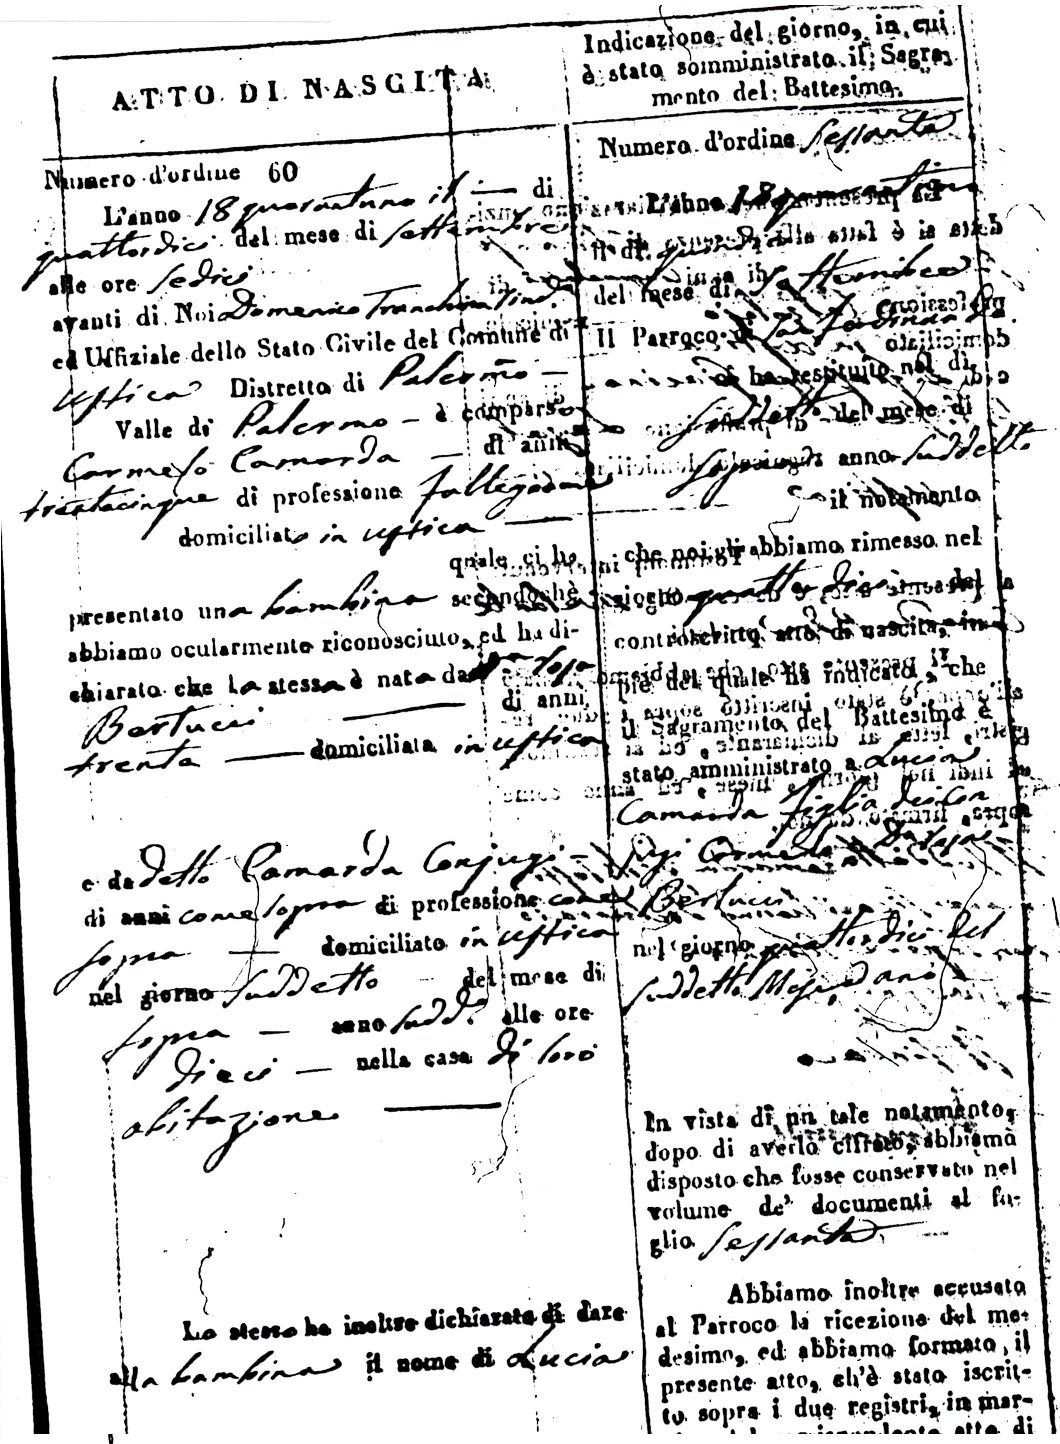 ATTO DI NASCITA
Numero d'ordine 60
L'anno 18 quarantuno il — di
quattordici del mese di settembre
alle ore sedici
avanti di Noi Domenico
ed Uffiziale dello Stato Civile del Comune di
Ustica Distretto di Palermo —
Valle di Palermo — è comparso
Carmelo Camarda — di anni
trentacinque di professione
domiciliato in Ustica —
quale ci ha
presentato una bambina secondochè
abbiamo ocularmente riconosciuto, ed ha di-
chiarato che la stessa è nata da
Bertucci — di anni
trenta — domiciliata in Ustica
e da detto Camarda Conjugi —
di anni come sopra di professione come
sopra — domiciliato in Ustica
nel giorno suddetto — del mese di
sopra — anno sudd.° alle ore
dieci — nella casa di loro
abitazione —
Lo stesso ha inoltre dichiarato di dare
alla bambina il nome di Lucia
Indicazione del giorno, in cui
è stato somministrato il Sagra-
mento del Battesimo.
Numero d'ordine Sessanta
L'anno 18 quarantuno
il dì quindici
del mese di Settembre
Il Parroco di
ci ha restituito nel dì
suddetto del mese di
anno suddetto
il notamento
che noi gli abbiamo rimesso nel
giorno quattordici del
controscritto atto di nascita, in
piè del quale ha indicato, che
il Sagramento del Battesimo è
stato amministrato a Lucia
Camarda figlia dei Con
jugi Carmelo e
Bertucci
nel giorno quattordici del
suddetto Mese, ed anno
In vista di un tale notamento,
dopo di averlo cifrato, abbiamo
disposto che fosse conservato nel
volume de' documenti al fo-
glio Sessanta
Abbiamo inoltre accusato
al Parroco la ricezione del me-
desimo, ed abbiamo formato il
presente atto, ch'è stato iscrit-
to sopra i due registri, in mar-